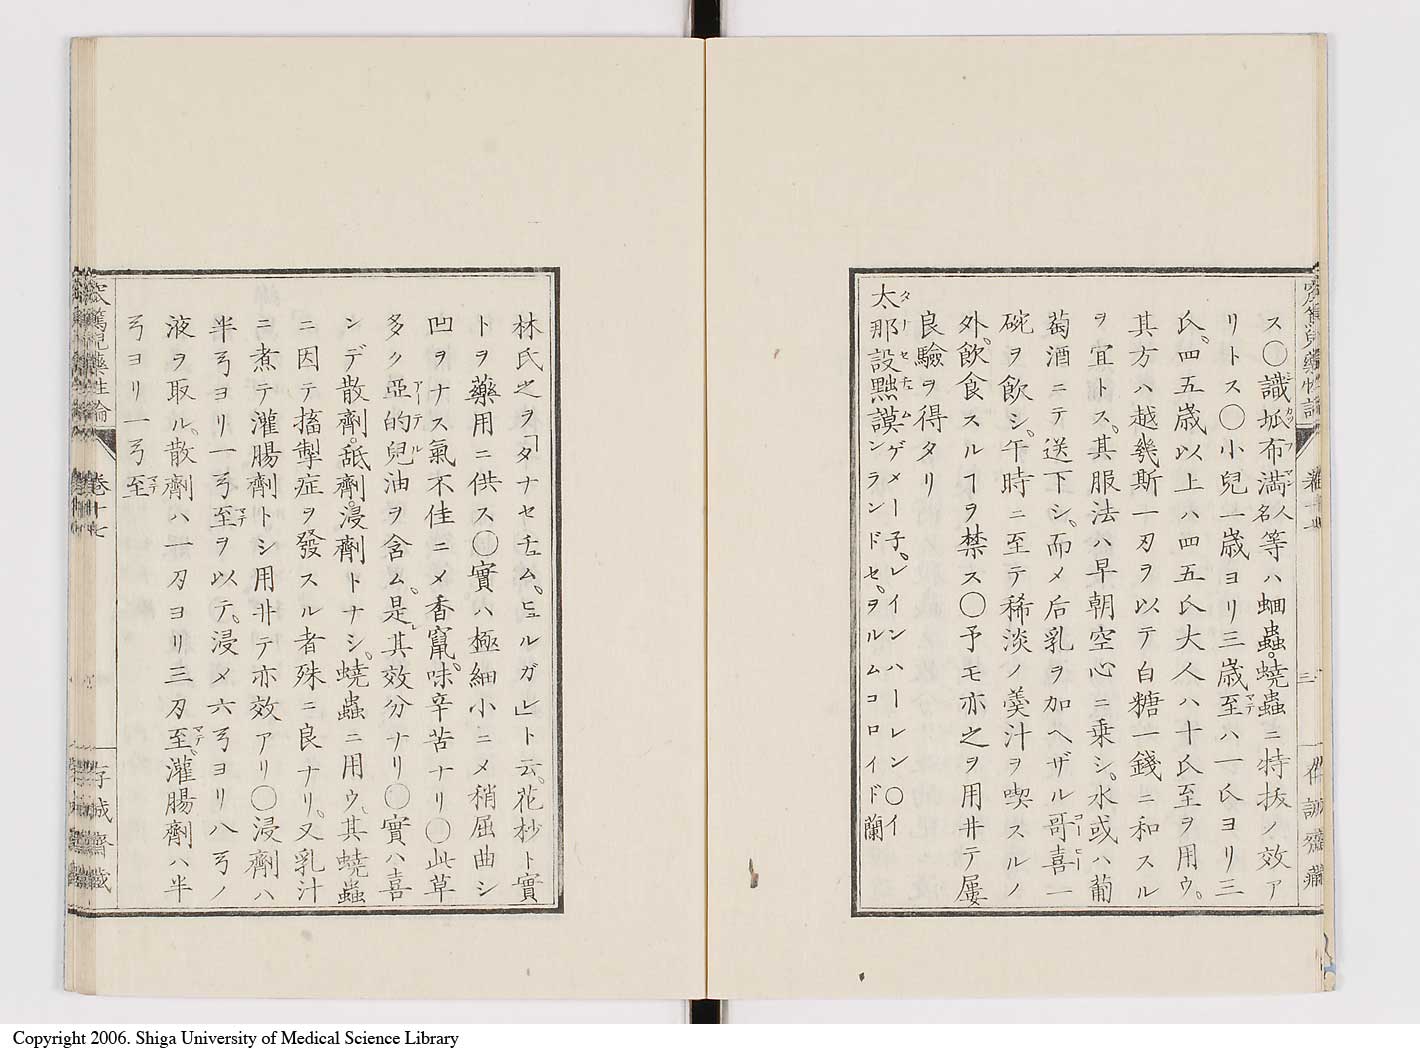 ス〇識坬布満人名等ハ蛔蟲。蟯蟲ニ特拔ノ效ア
リトス〇小兒一歳ヨリ三歳至ハ一氏ヨリ三
氏。四五歳以上ハ四五氏大人ハ十氏至ヲ用ウ。
其方ハ越幾斯一刃ヲ以テ白糖一錢ニ和スル
ヲ宜トス。其服法ハ早朝空心ニ乗シ。水或ハ葡
萄酒ニテ送下シ。而メ后乳ヲ加ヘザル哥喜一
碗ヲ飲シ。午時ニ至テ稀淡ノ羮汁ヲ喫スルノ
外。飲食スルヿヲ禁ス〇予モ亦之ヲ用井テ屢
良驗ヲ得タリ
太那設㸃謨ゲメー子。レインハーレン〇イ
ンランドセ。ヲルムコロイド蘭
三
存誠齋藏
林氏之ヲ「タナセチュム。ヒュルガレ」ト云。花杪ト實
トヲ藥用ニ供ス〇實ハ極細小ニメ稍屈曲シ
凹ヲナス氣不佳ニメ香竄。味辛苦ナリ〇此草
多ク亞的兒油ヲ含ム。是レ其效分ナリ〇實ハ喜
ンデ散劑。舐劑浸劑トナシ。蟯蟲ニ用ウ。其蟯蟲
ニ因テ搐掣症ヲ發スル者殊ニ良ナリ。又乳汁
ニ煮テ灌腸劑トシ用井テ亦效アリ〇浸劑ハ
半弓ヨリ一弓至ヲ以テ。浸メ六弓ヨリ八弓ノ
液ヲ取ル。散劑ハ一刃ヨリ三刃至。灌腸劑ハ半
弓ヨリ一弓至
窊篤兒藥性論
卷十七
存誠齋藏
Copyright 2006. Shiga University of Medical Science Library